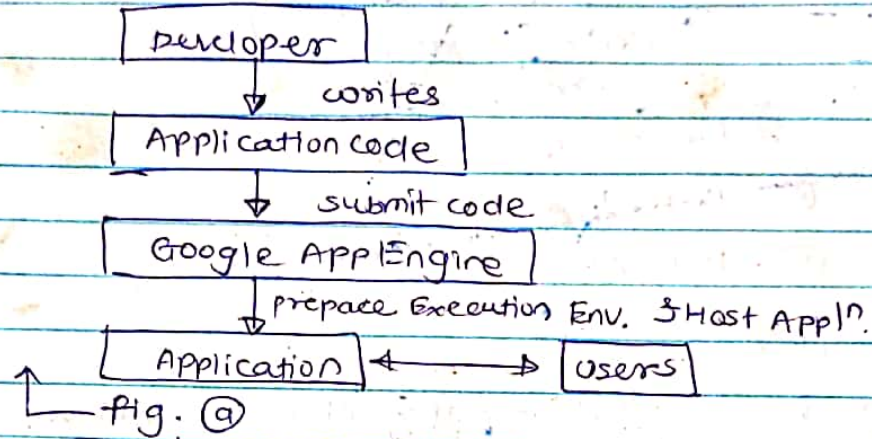 Developer
writes
Application code
submit code
Google AppEngine
prepare Execution Env. & Host Appln.
Application Users
fig. ⓐ